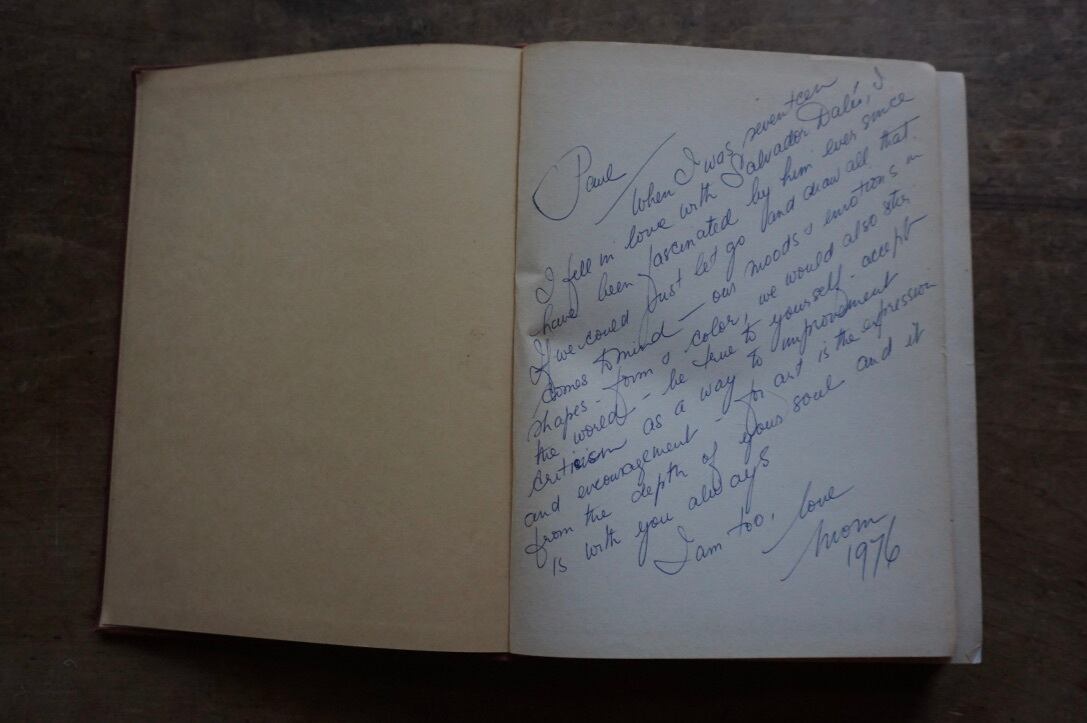 Paul
When I was seventeen
I fell in love with Salvador Dalés, I
have been fascinated by him ever since
If we could just let go and draw all that
comes to mind — our moods & emotions in
shapes - form & color, we would also
the world - be true to yourself - accept
criticism as a way to improvement
and encouragement - for art is the expression
from the depth of your soul and it
is with you always
I am too, love
Mom
1976